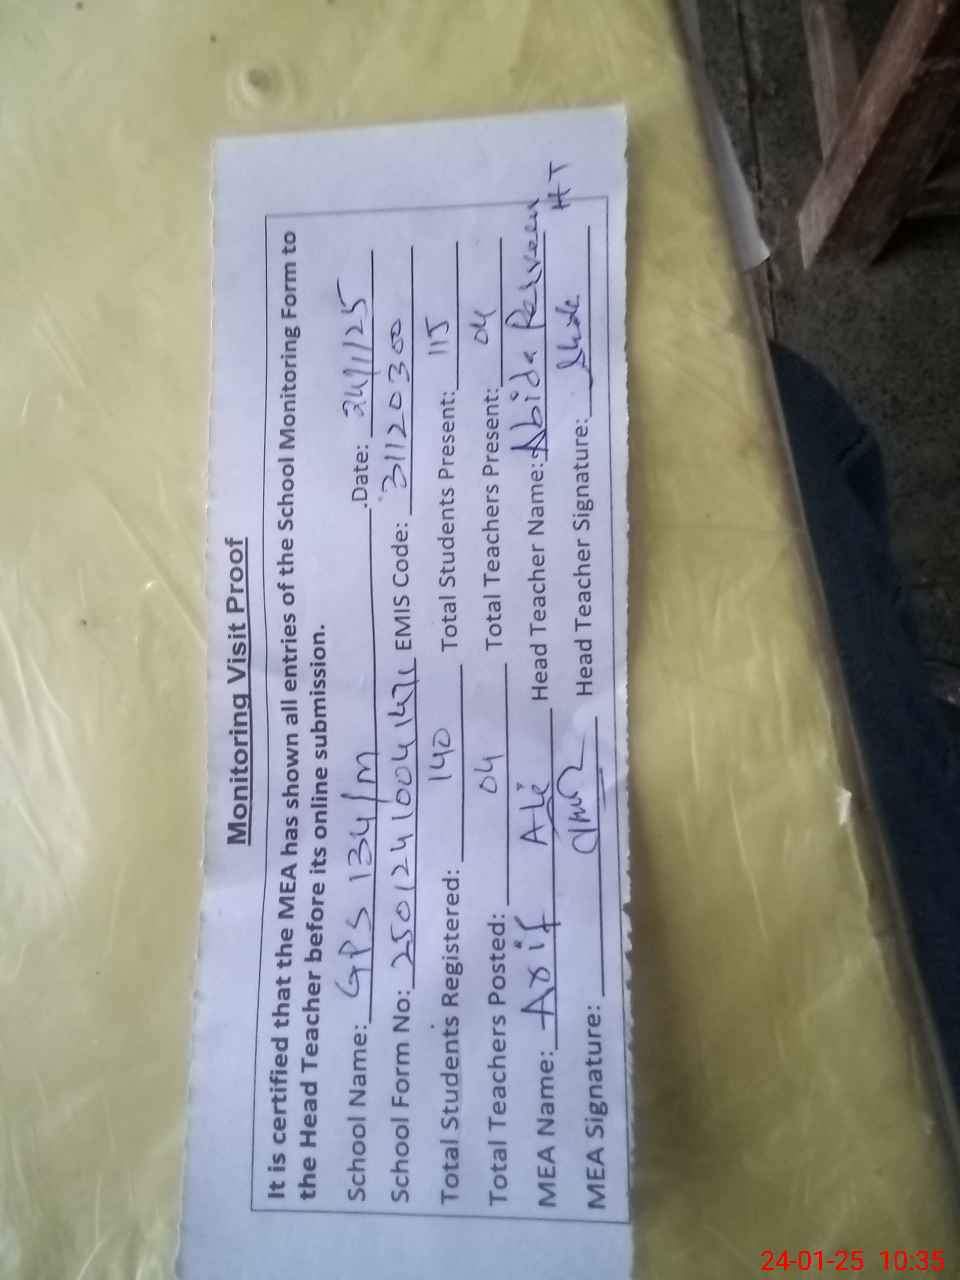 Monitoring Visit Proof
It is certified that the MEA has shown all entries of the School Monitoring Form to
the Head Teacher before its online submission.
School Name: GPS 134/M Date: 24/1/25
School Form No: 25012410041471 EMIS Code: 31120300
Total Students Registered: 140 Total Students Present: 115
Total Teachers Posted: 04 Total Teachers Present: 04
MEA Name: Arif Ali Head Teacher Name: Abida Parveen
MEA Signature: Head Teacher Signature: HT
24-01-25 10:35